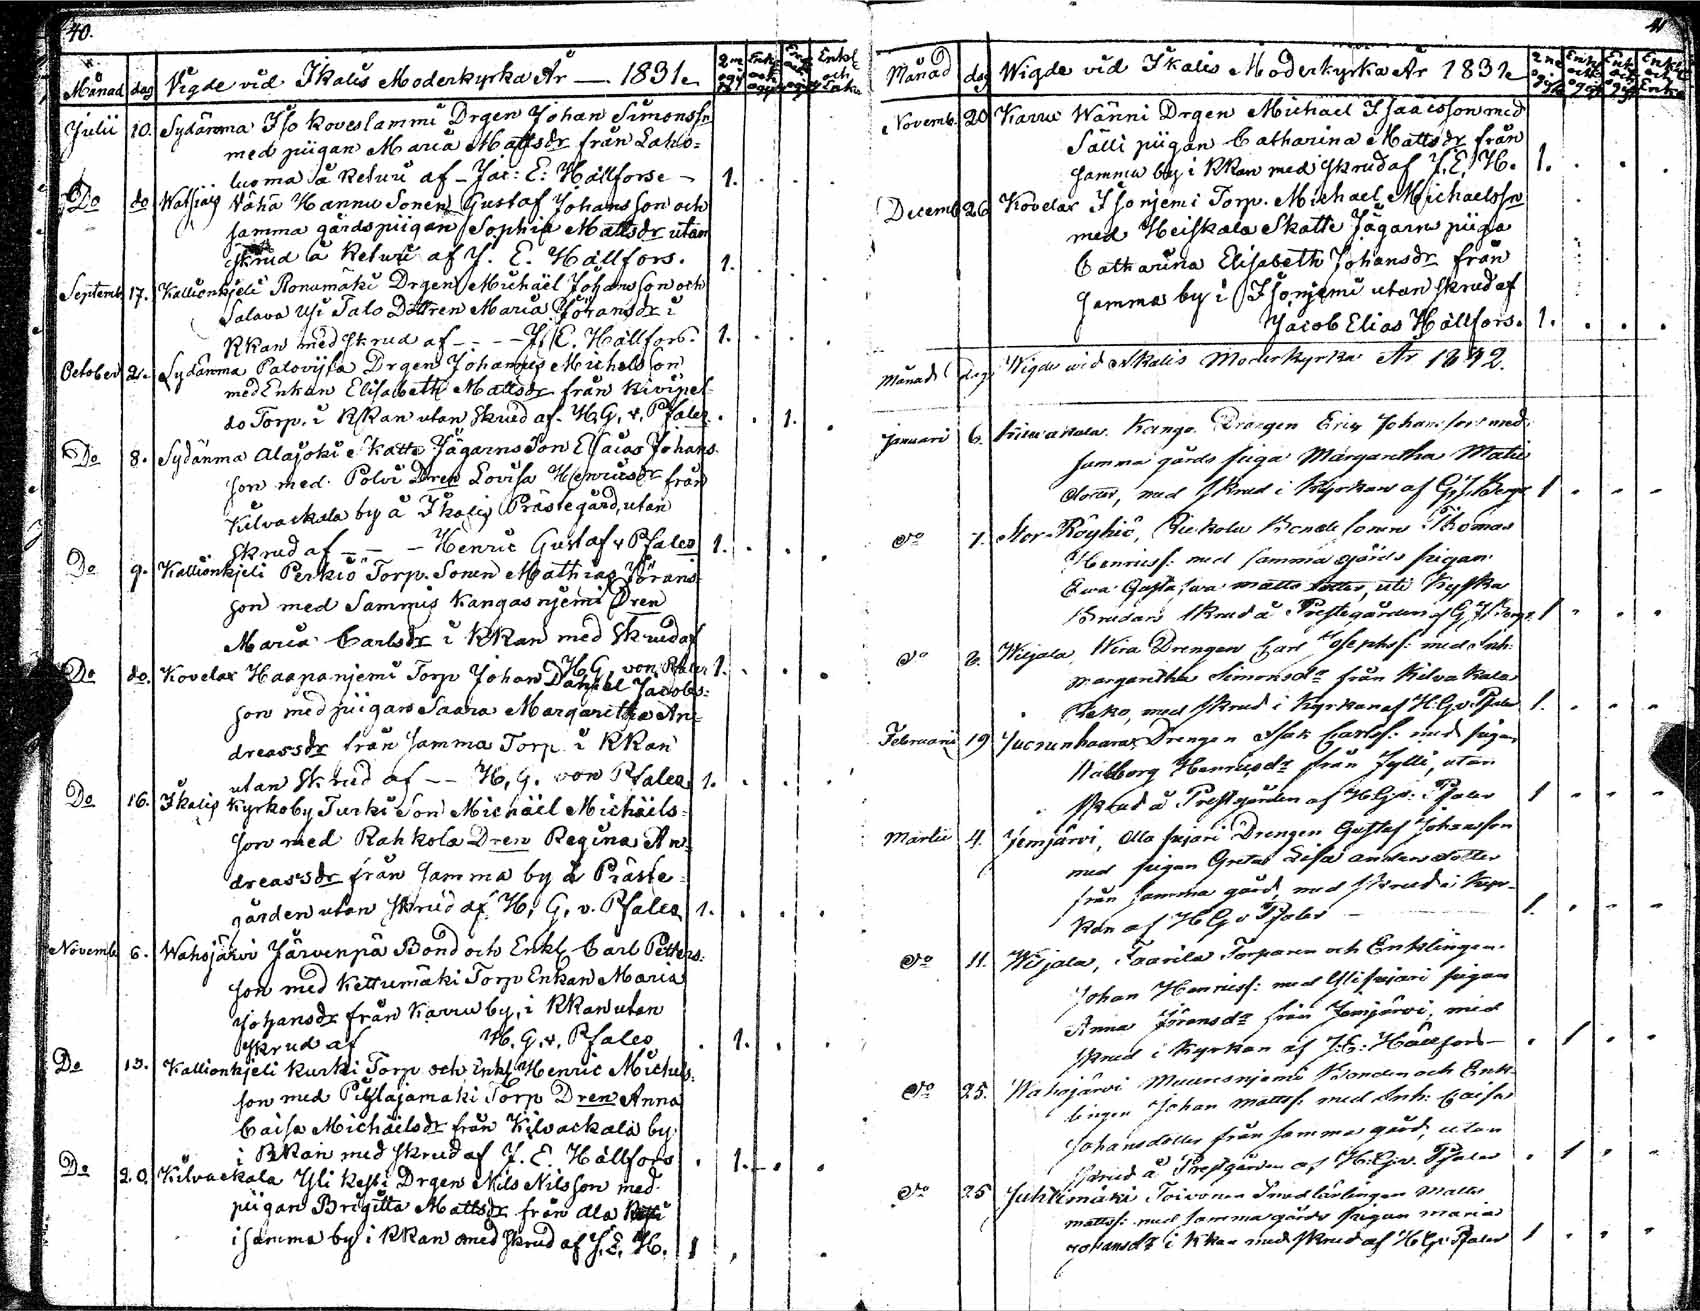 40.
Månad dag Vigde vid Ikalis Moderkyrka År — 1831.
Julii 10. Sydänma Iso Koveslammi Drgen Johan Simonssn
med piigan Maria Mattsdr från Lahis=
luoma å Returi af – Jac: E: Hällforse – 1.
Do do Watsiais Vähä Hannu Sonen Gustaf Johansson och
samma gårds piigan Sophia Mattsdr utan
skrud å Returi af J. E. Hällfors. 1.
Septemb. 17. Kallionkjeli Ronumäki Drgen Michaël Johansson och
Salava Usi Talo Dottren Maria Jöransdr i
KKan med skrud af - - - - J. E. Hällfors. 1.
October 2. Sydänma Palovijsa Drgen Johannes Michelsson
med Enkan Elisabeth Mattsdr från Kivipel-
do Torp. i KKan utan skrud af. H. G. v. Pfaler. 1.
Do 8. Sydänma Alajoki Skatte Jägarns Son Esaias Johans
son med Polvi Dren Lovisa Henricsdr från
Kilvackala by å Ikalis Prästegård, utan
skrud af – – – Henric Gustaf v Pfaler 1.
Do 9. Kallionkjeli Perkiö Torp. Sonen Mathias Jörans=
son med Sammis Kangasnjemi Dren
Maria Carlsdr i KKan med skrud af
H. G. von Pfaler 1.
Do do. Kovelax Haapanjemi Torp Johan Daniel Jacobs=
son med piigan Saara Margaretha An=
dreasdr från samma Torp i KKan
utan skrud af – – H. G. von Pfaler 1.
Do 16. Ikalis Kyrkoby Turki Son Michaël Michaels=
son med Rahkola Dren Regina An=
dreasdr från samma by å Präste=
gården utan skrud af H. G. v. Pfaler 1.
Novemb 6. Wahojärvi Järvenpä Bond och Enkl. Carl Petters=
son med Kettumäki Torp Enkan Maria
Johansdr från Karru by, i KKan utan
skrud af H. G. v. Pfaler 1.
Do 13. Kallionkjeli Kurki Torp och Enkl Henric Michels=
son med Pijlajamaki Torp Dren Anna
Caisa Michaelsdr från Kilvackala by
i KKan med skrud af J. E. Hällfors 1.
Do 20. Kilvackala Yli Kesti Drgen Nils Nilsson med
piigan Brigitta Mattsdr från Ala Kesti
i samma by i KKan med skrud af J. E. H. 1
41
Månad dag Wigde vid Ikalis Moderkyrka År 1831.
Novemb. 20 Karru Wänni Drgen Michael Isaacsson med
Sälli piigan Catharina Mattsdr från
samma by i KKan med skrud af J. E. H. 1.
Decemb 26 Kovelax Isonjemi Torp. Michael Michaelssn
med Heiskala Skatte Jägarn piiga
Catharina Elisabeth Johansdr från
samma by i Isonjemi utan skrud af
Jacob Elias Hällfors. 1.
Månad dag Wigde vid Ikalis Moderkyrka År 1832.
Januari 6. Kilwakala Kango Drengen Eric Johansson med
samma gårds piga Margaretha Matts
dotter, med skrud i Kyrkan af G J Berg 1
Do 7. Stor-Röyhiö, Bonde sonen Thomas
Henricss: med samma gårds pigan
Ewa Gustafwa Matts dotter, uti
Brudar skrud å Prestegården af G J Berg 1
Do 8. Wiljala, Wira Drengen Carl Josephs: med Inh:
Margaretha Simonsdr från Kilwakala
med skrud i Kyrkan af H. G. v. Pfaler 1.
Februarii 19 Drengen Isak Carlss: med pigan
Walborg Henricsdr från Jylli, utan
skrud å Prestgården af H. G. v. Pfaler 1
Martii 4. Jemjärvi, Alla Drengen Gustaf Johansson
med pigan Greta Lisa Anders dotter
från samma gård, med skrud i Kyr-
kan af H G v Pfaler – 1.
Do 11. Wiljala, Taavila Torparen och Enklingen
Johan Henricss: med pigan
Anna Jöransdr från Jemjärvi, med
skrud i Kyrkan af J. E. Hällfors – 1
Do 25. Wahojärvi Muuresnjemi Bonden och Enk-
lingen Johan Mattss: med Inh: Caisa
Johansdotter från samma gård, utan
skrud å Prestgården af H. G. v. Pfaler 1
Do 25 Juhtimäki Toivonen Smedlärlingen Matts
Mattss: med samma gårds pigan Maria
Johansdr i KKan med skrud af H G v Pfaler 1